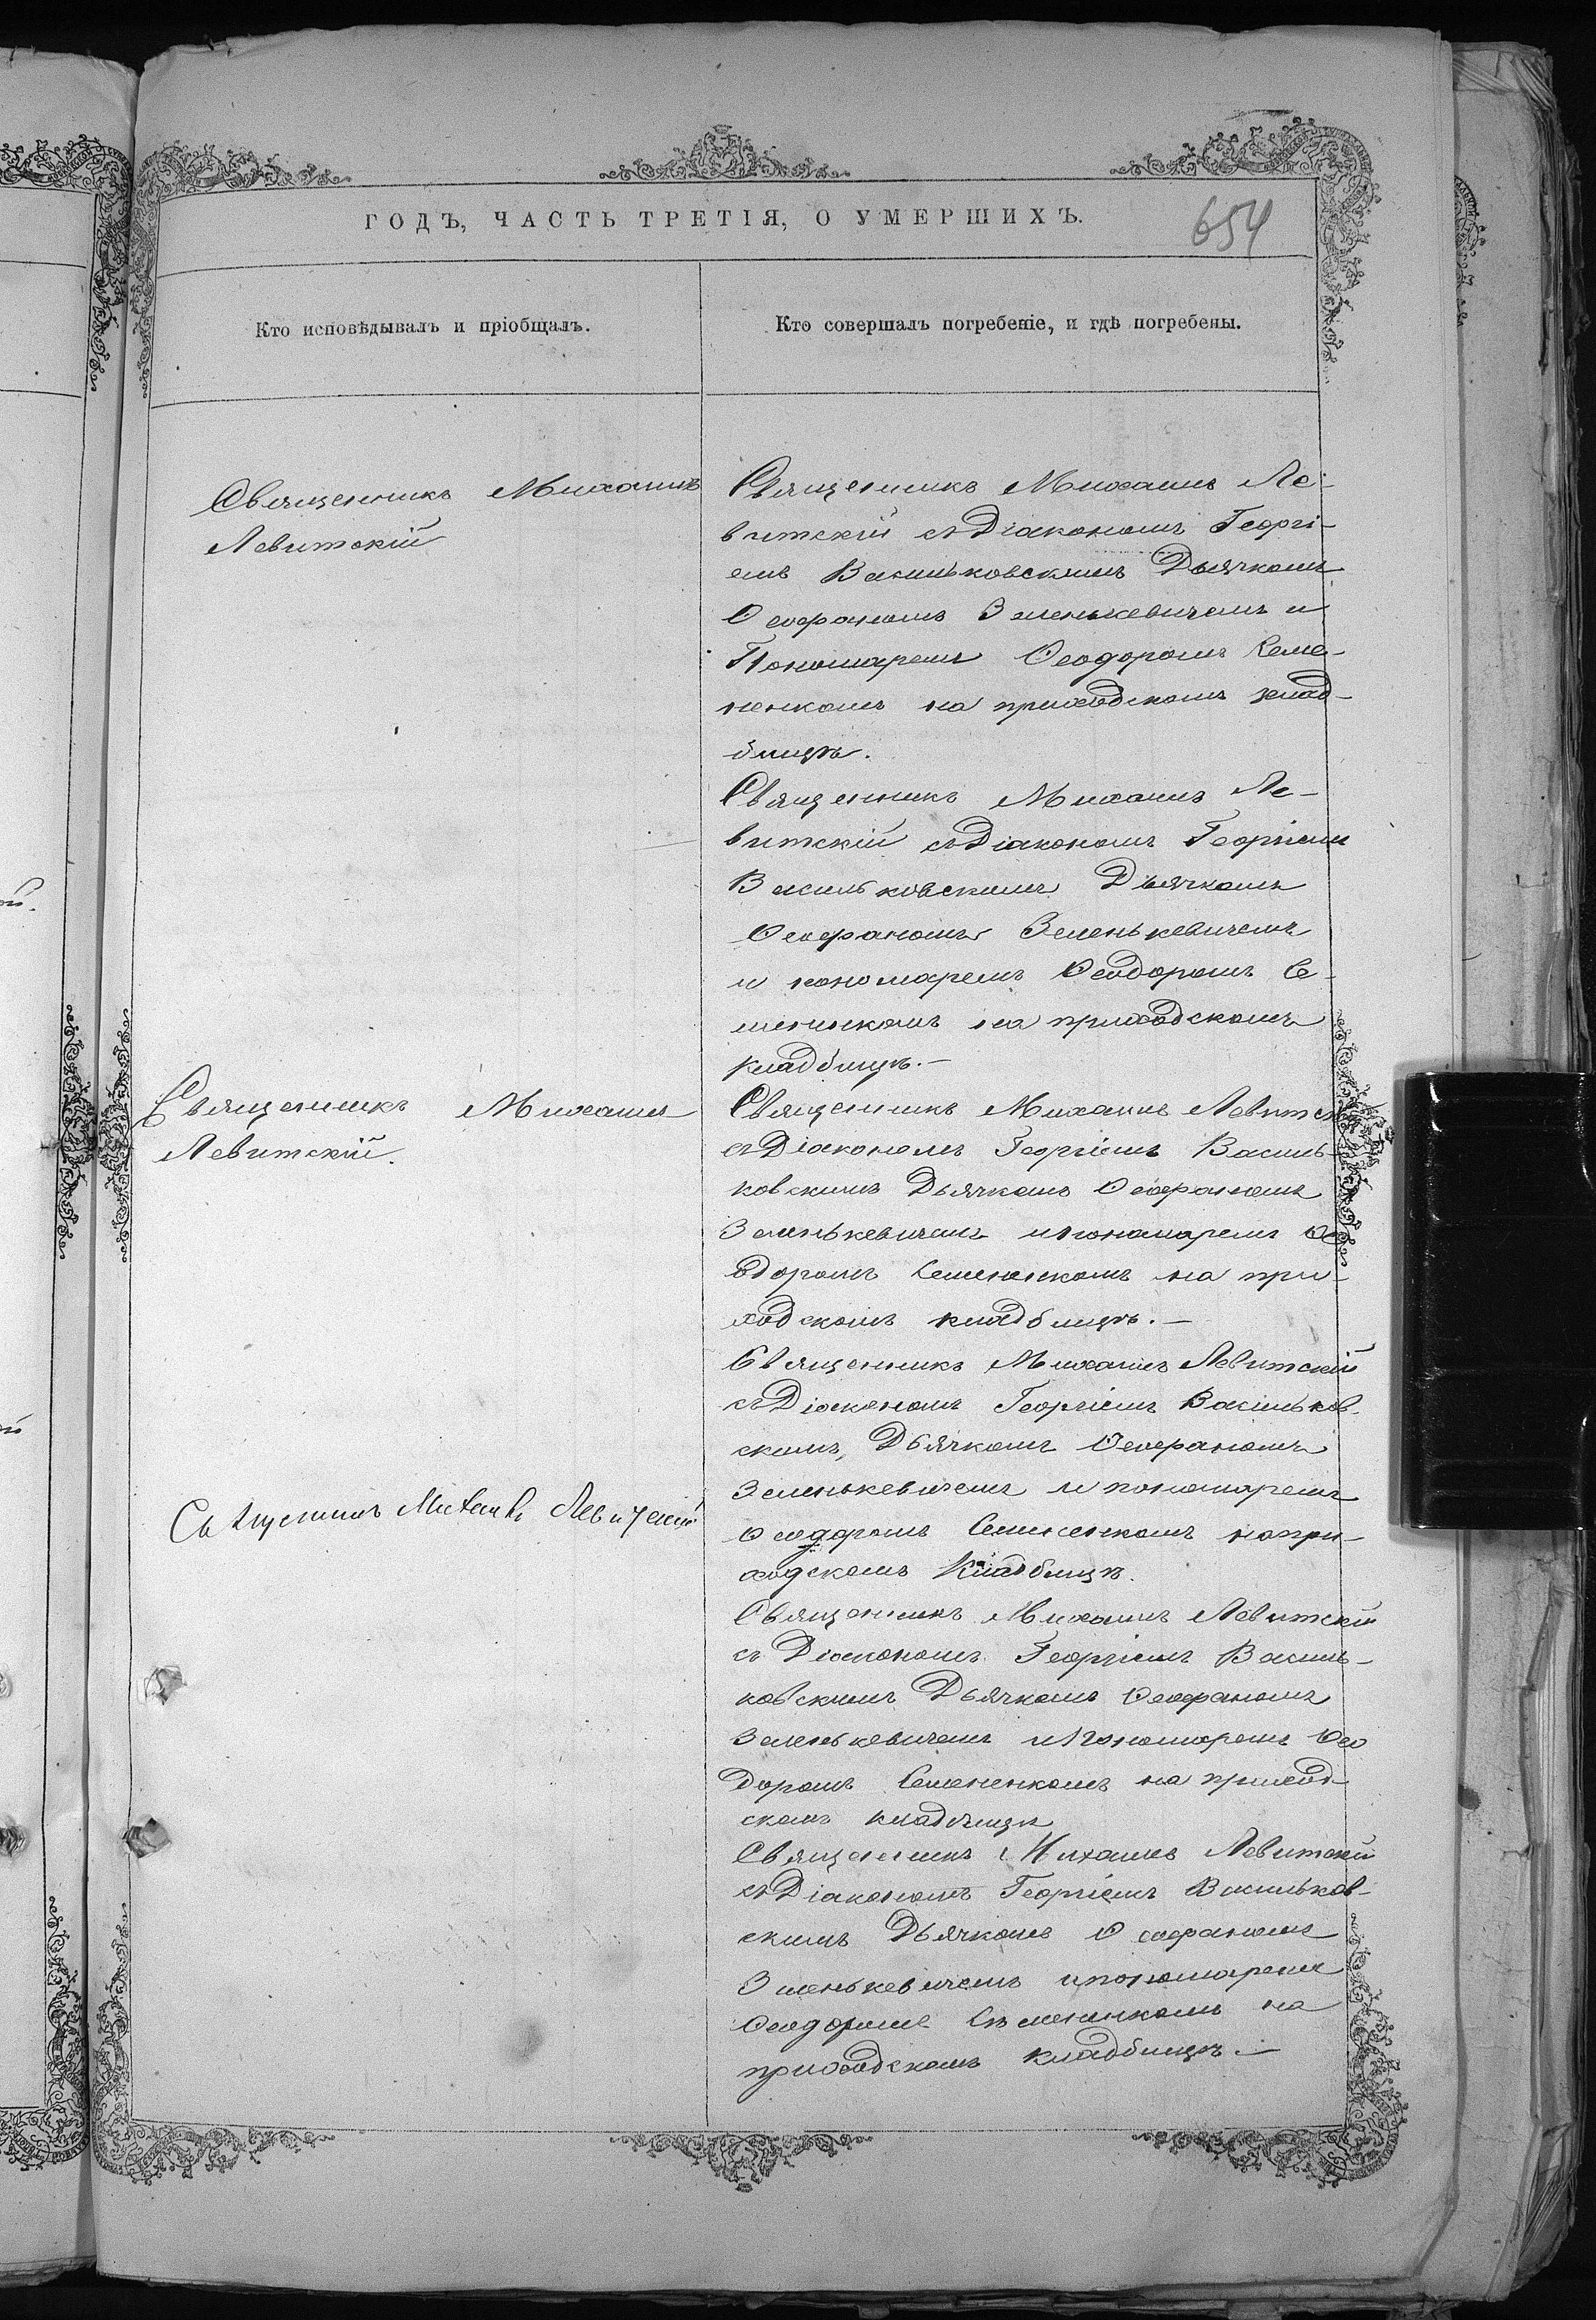 ГОДЪ, ЧАСТЬ ТРЕТІЯ, О УМЕРШИХЪ.
654
Кто исповѣдывалъ и пріобщалъ.
Кто совершалъ погребеніе, и гдѣ погребены.
Священникъ Михаилъ
Левитскій
Священникъ Михаилъ Ле-
витскій съ Діакономъ Георгі-
емъ Васильковскимъ Дьячкомъ
Ѳеофаномъ Зеленькевичемъ и
Пономаремъ Ѳеодоромъ Семе-
ненкомъ на приходскомъ клад-
бищѣ.
Священникъ Михаилъ Ле-
витскій съ Діакономъ Георгіемъ
Васильковскимъ Дьячкомъ
Ѳеофаномъ Зеленькевичемъ
и пономаремъ Ѳеодоромъ Се-
мененкомъ на приходскомъ
кладбищѣ.-
Священникъ Михаилъ
Левитскій.
Священникъ Михаилъ Левитск
съ Діакономъ Георгіемъ Василь-
ковскимъ Дьячкомъ Ѳеофаномъ
Зеленькевичемъ и пономаремъ Ѳе
одоромъ Семененкомъ на при-
ходскомъ кладбищѣ.-
Священникъ Михаилъ Левитскій
съ Діакономъ Георгіемъ Васильков-
скимъ, Дьячкомъ Ѳеофаномъ
Зеленькевичемъ и пономаремъ
Ѳеодоромъ Семененкомъ на при-
ходскомъ Кладбищѣ.
Священникъ Михаилъ Левитскій
Священникъ Михаилъ Левитскій
съ Діакономъ Георгіемъ Василь-
ковскимъ Дьячкомъ Ѳеофаномъ
Зеленькевичемъ и Пономаремъ Ѳео
доромъ Семененкомъ на приход-
скомъ кладбищѣ
Священникъ Михаилъ Левитскій
съ Діакономъ Георгіемъ Васильков-
скимъ Дьячкомъ Ѳеофаномъ
Зеленькевичемъ и пономаремъ
Ѳеодоромъ Семененкомъ на
приходскомъ кладбищѣ.-